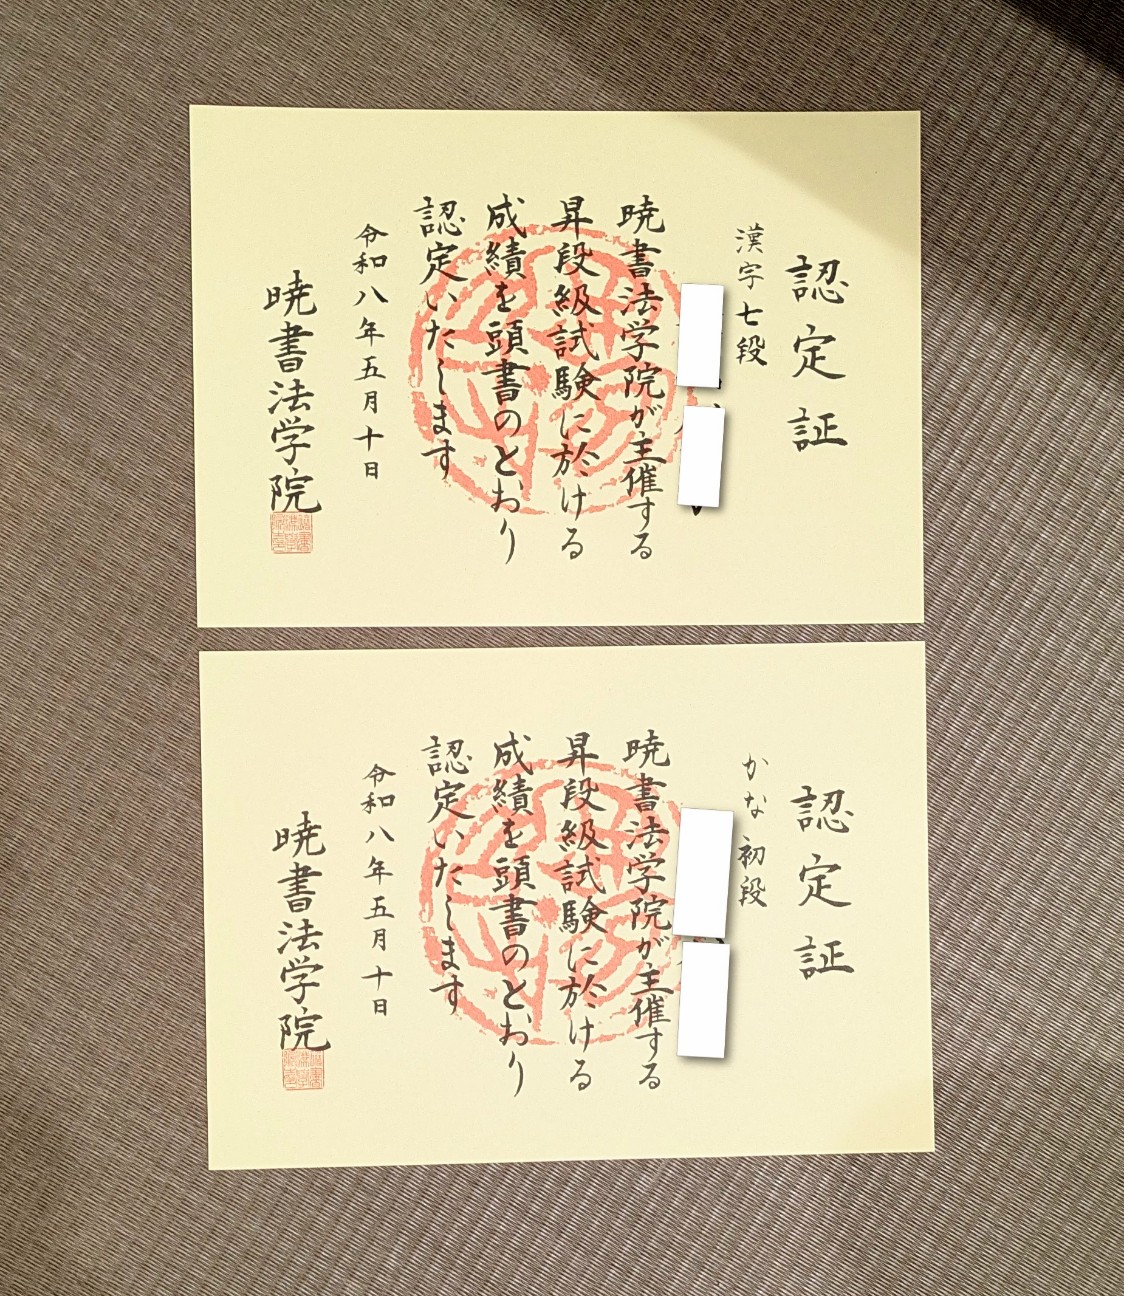 認定証
漢字七段
暁書法学院が主催する
昇段級試験に於ける
成績を頭書のとおり
認定いたします
令和八年五月十日
暁書法学院
認定証
かな初段
暁書法学院が主催する
昇段級試験に於ける
成績を頭書のとおり
認定いたします
令和八年五月十日
暁書法学院